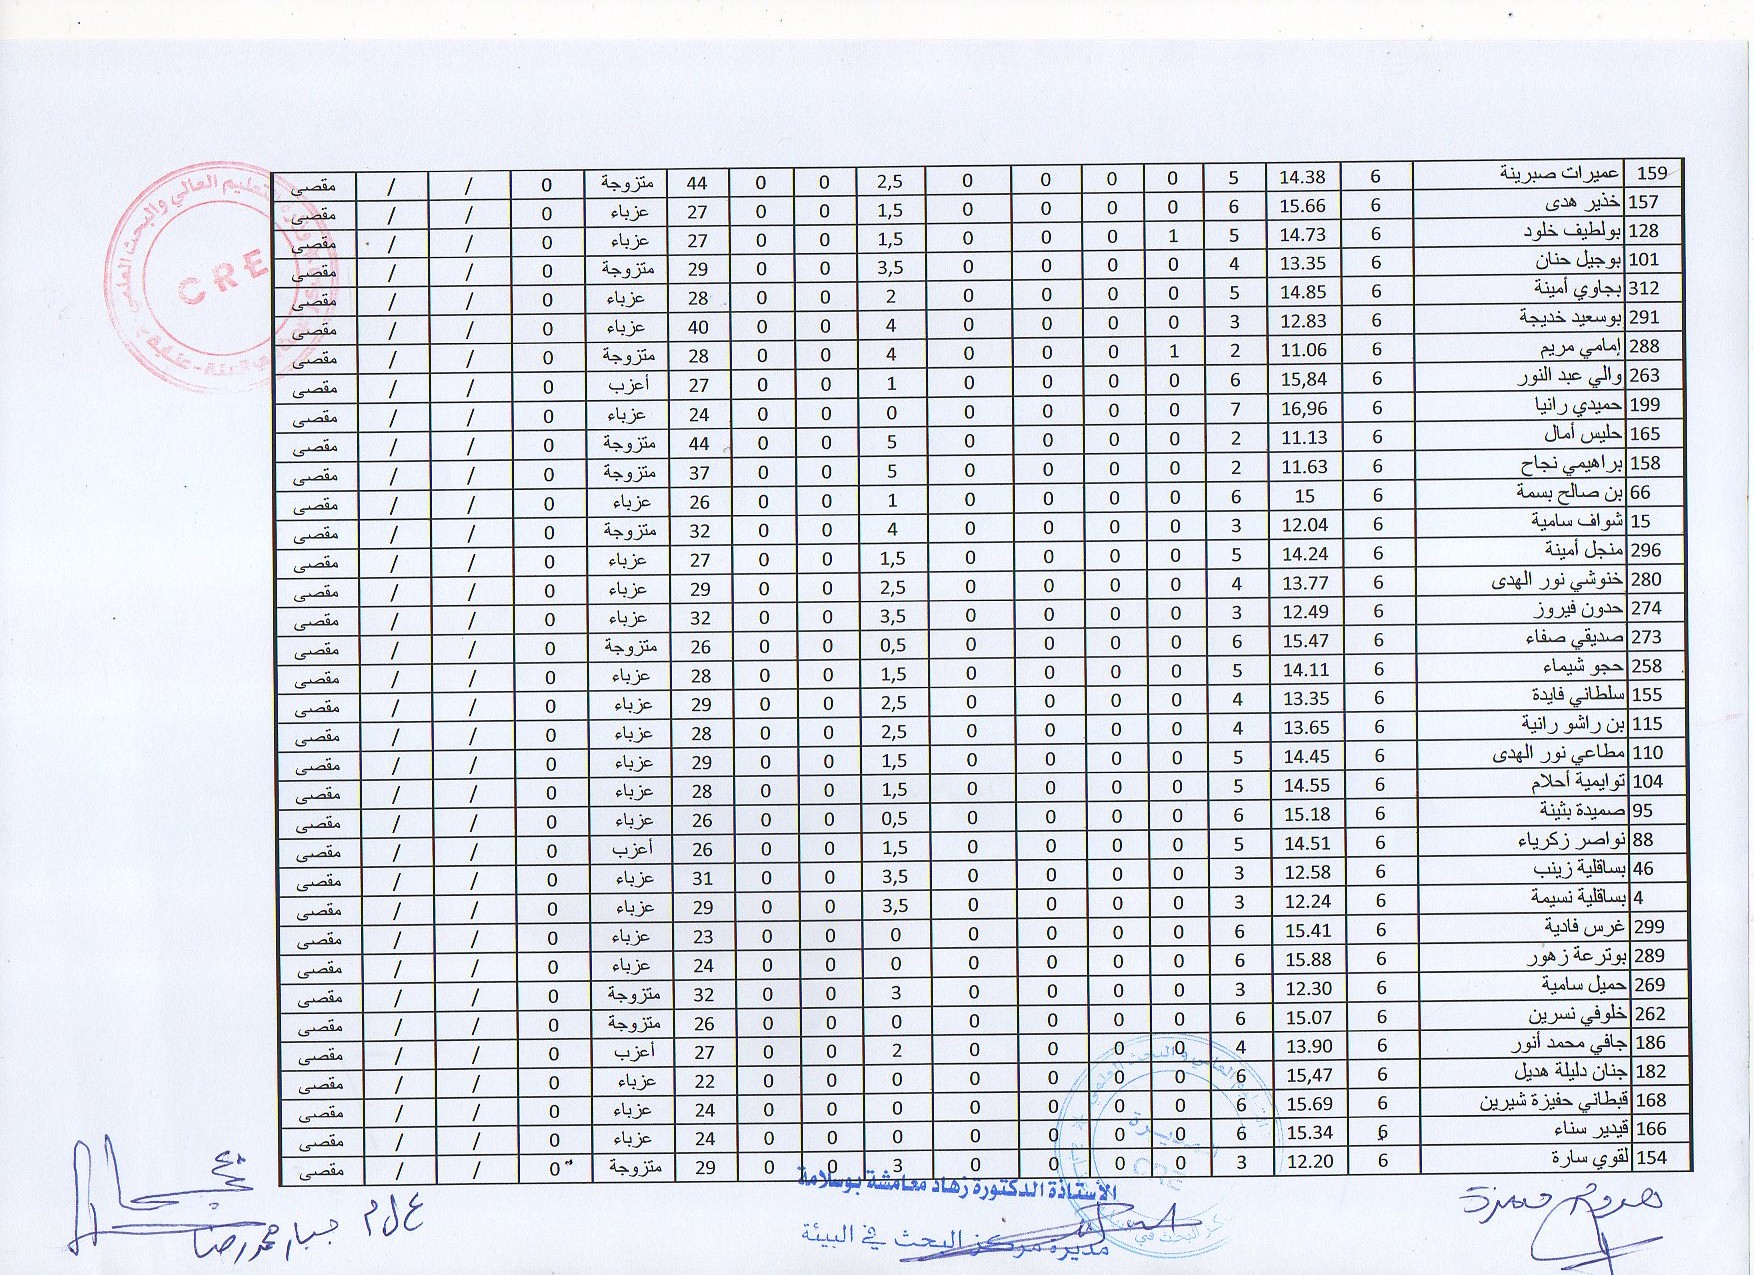 159 عميرات صبرينة 6 14.38 5 0 0 0 0 2,5 0 0 44 متزوجة 0 / / مقصى
157 خذير هدى 6 15.66 6 0 0 0 0 1,5 0 0 27 عزباء 0 / / مقصى
128 بولطيف خلود 6 14.73 5 1 0 0 0 1,5 0 0 27 عزباء 0 / / مقصى
101 بوجيل حنان 6 13.35 4 0 0 0 0 3,5 0 0 29 متزوجة 0 / / مقصى
312 بجاوي أمينة 6 14.85 5 0 0 0 0 2 0 0 28 عزباء 0 / / مقصى
291 بوسعيد خديجة 6 12.83 3 0 0 0 0 4 0 0 40 عزباء 0 / / مقصى
288 إمامي مريم 6 11.06 2 1 0 0 0 4 0 0 28 متزوجة 0 / / مقصى
263 والي عبد النور 6 15,84 6 0 0 0 0 1 0 0 27 أعزب 0 / / مقصى
199 حميدي رانيا 6 16,96 7 0 0 0 0 0 0 0 24 عزباء 0 / / مقصى
165 حليس أمال 6 11.13 2 0 0 0 0 5 0 0 44 متزوجة 0 / / مقصى
158 براهيمي نجاح 6 11.63 2 0 0 0 0 5 0 0 37 متزوجة 0 / / مقصى
66 بن صالح بسمة 6 15 6 0 0 0 0 1 0 0 26 عزباء 0 / / مقصى
15 شواف سامية 6 12.04 3 0 0 0 0 4 0 0 32 متزوجة 0 / / مقصى
296 منجل أمينة 6 14.24 5 0 0 0 0 1,5 0 0 27 عزباء 0 / / مقصى
280 خنوشي نور الهدى 6 13.77 4 0 0 0 0 2,5 0 0 29 عزباء 0 / / مقصى
274 حدون فيروز 6 12.49 3 0 0 0 0 3,5 0 0 32 عزباء 0 / / مقصى
273 صديقي صفاء 6 15.47 6 0 0 0 0 0,5 0 0 26 متزوجة 0 / / مقصى
258 حجو شيماء 6 14.11 5 0 0 0 0 1,5 0 0 28 عزباء 0 / / مقصى
155 سلطاني فايدة 6 13.35 4 0 0 0 0 2,5 0 0 29 عزباء 0 / / مقصى
115 بن راشو رانية 6 13.65 4 0 0 0 0 2,5 0 0 28 عزباء 0 / / مقصى
110 مطاعي نور الهدى 6 14.45 5 0 0 0 0 1,5 0 0 29 عزباء 0 / / مقصى
104 توايمية أحلام 6 14.55 5 0 0 0 0 1,5 0 0 28 عزباء 0 / / مقصى
95 صميدة بثينة 6 15.18 6 0 0 0 0 0,5 0 0 26 عزباء 0 / / مقصى
88 نواصر زكرياء 6 14.51 5 0 0 0 0 1,5 0 0 26 أعزب 0 / / مقصى
46 بساقلية زينب 6 12.58 3 0 0 0 0 3,5 0 0 31 عزباء 0 / / مقصى
4 بساقلية نسيمة 6 12.24 3 0 0 0 0 3,5 0 0 29 عزباء 0 / / مقصى
299 غرس فادية 6 15.41 6 0 0 0 0 0 0 0 23 عزباء 0 / / مقصى
289 بوترعة زهور 6 15.88 6 0 0 0 0 0 0 0 24 عزباء 0 / / مقصى
269 حميل سامية 6 12.30 3 0 0 0 0 3 0 0 32 متزوجة 0 / / مقصى
262 خلوفي نسرين 6 15.07 6 0 0 0 0 0 0 0 26 متزوجة 0 / / مقصى
186 جافي محمد أنور 6 13.90 4 0 0 0 0 2 0 0 27 أعزب 0 / / مقصى
182 جنان دليلة هديل 6 15,47 6 0 0 0 0 0 0 0 22 عزباء 0 / / مقصى
168 قبطاني حفيزة شيرين 6 15.69 6 0 0 0 0 0 0 0 24 عزباء 0 / / مقصى
166 قيدير سناء 6 15.34 6 0 0 0 0 0 0 0 24 عزباء 0 / / مقصى
154 لقوي سارة 6 12.20 3 0 0 0 0 3 0 0 29 متزوجة 0 / / مقصى
CRE
الأستاذة الدكتورة زهاد معامشة بوسلامة
مديرة مركز البحث في البيئة
ع ل م جبار محمد رضا